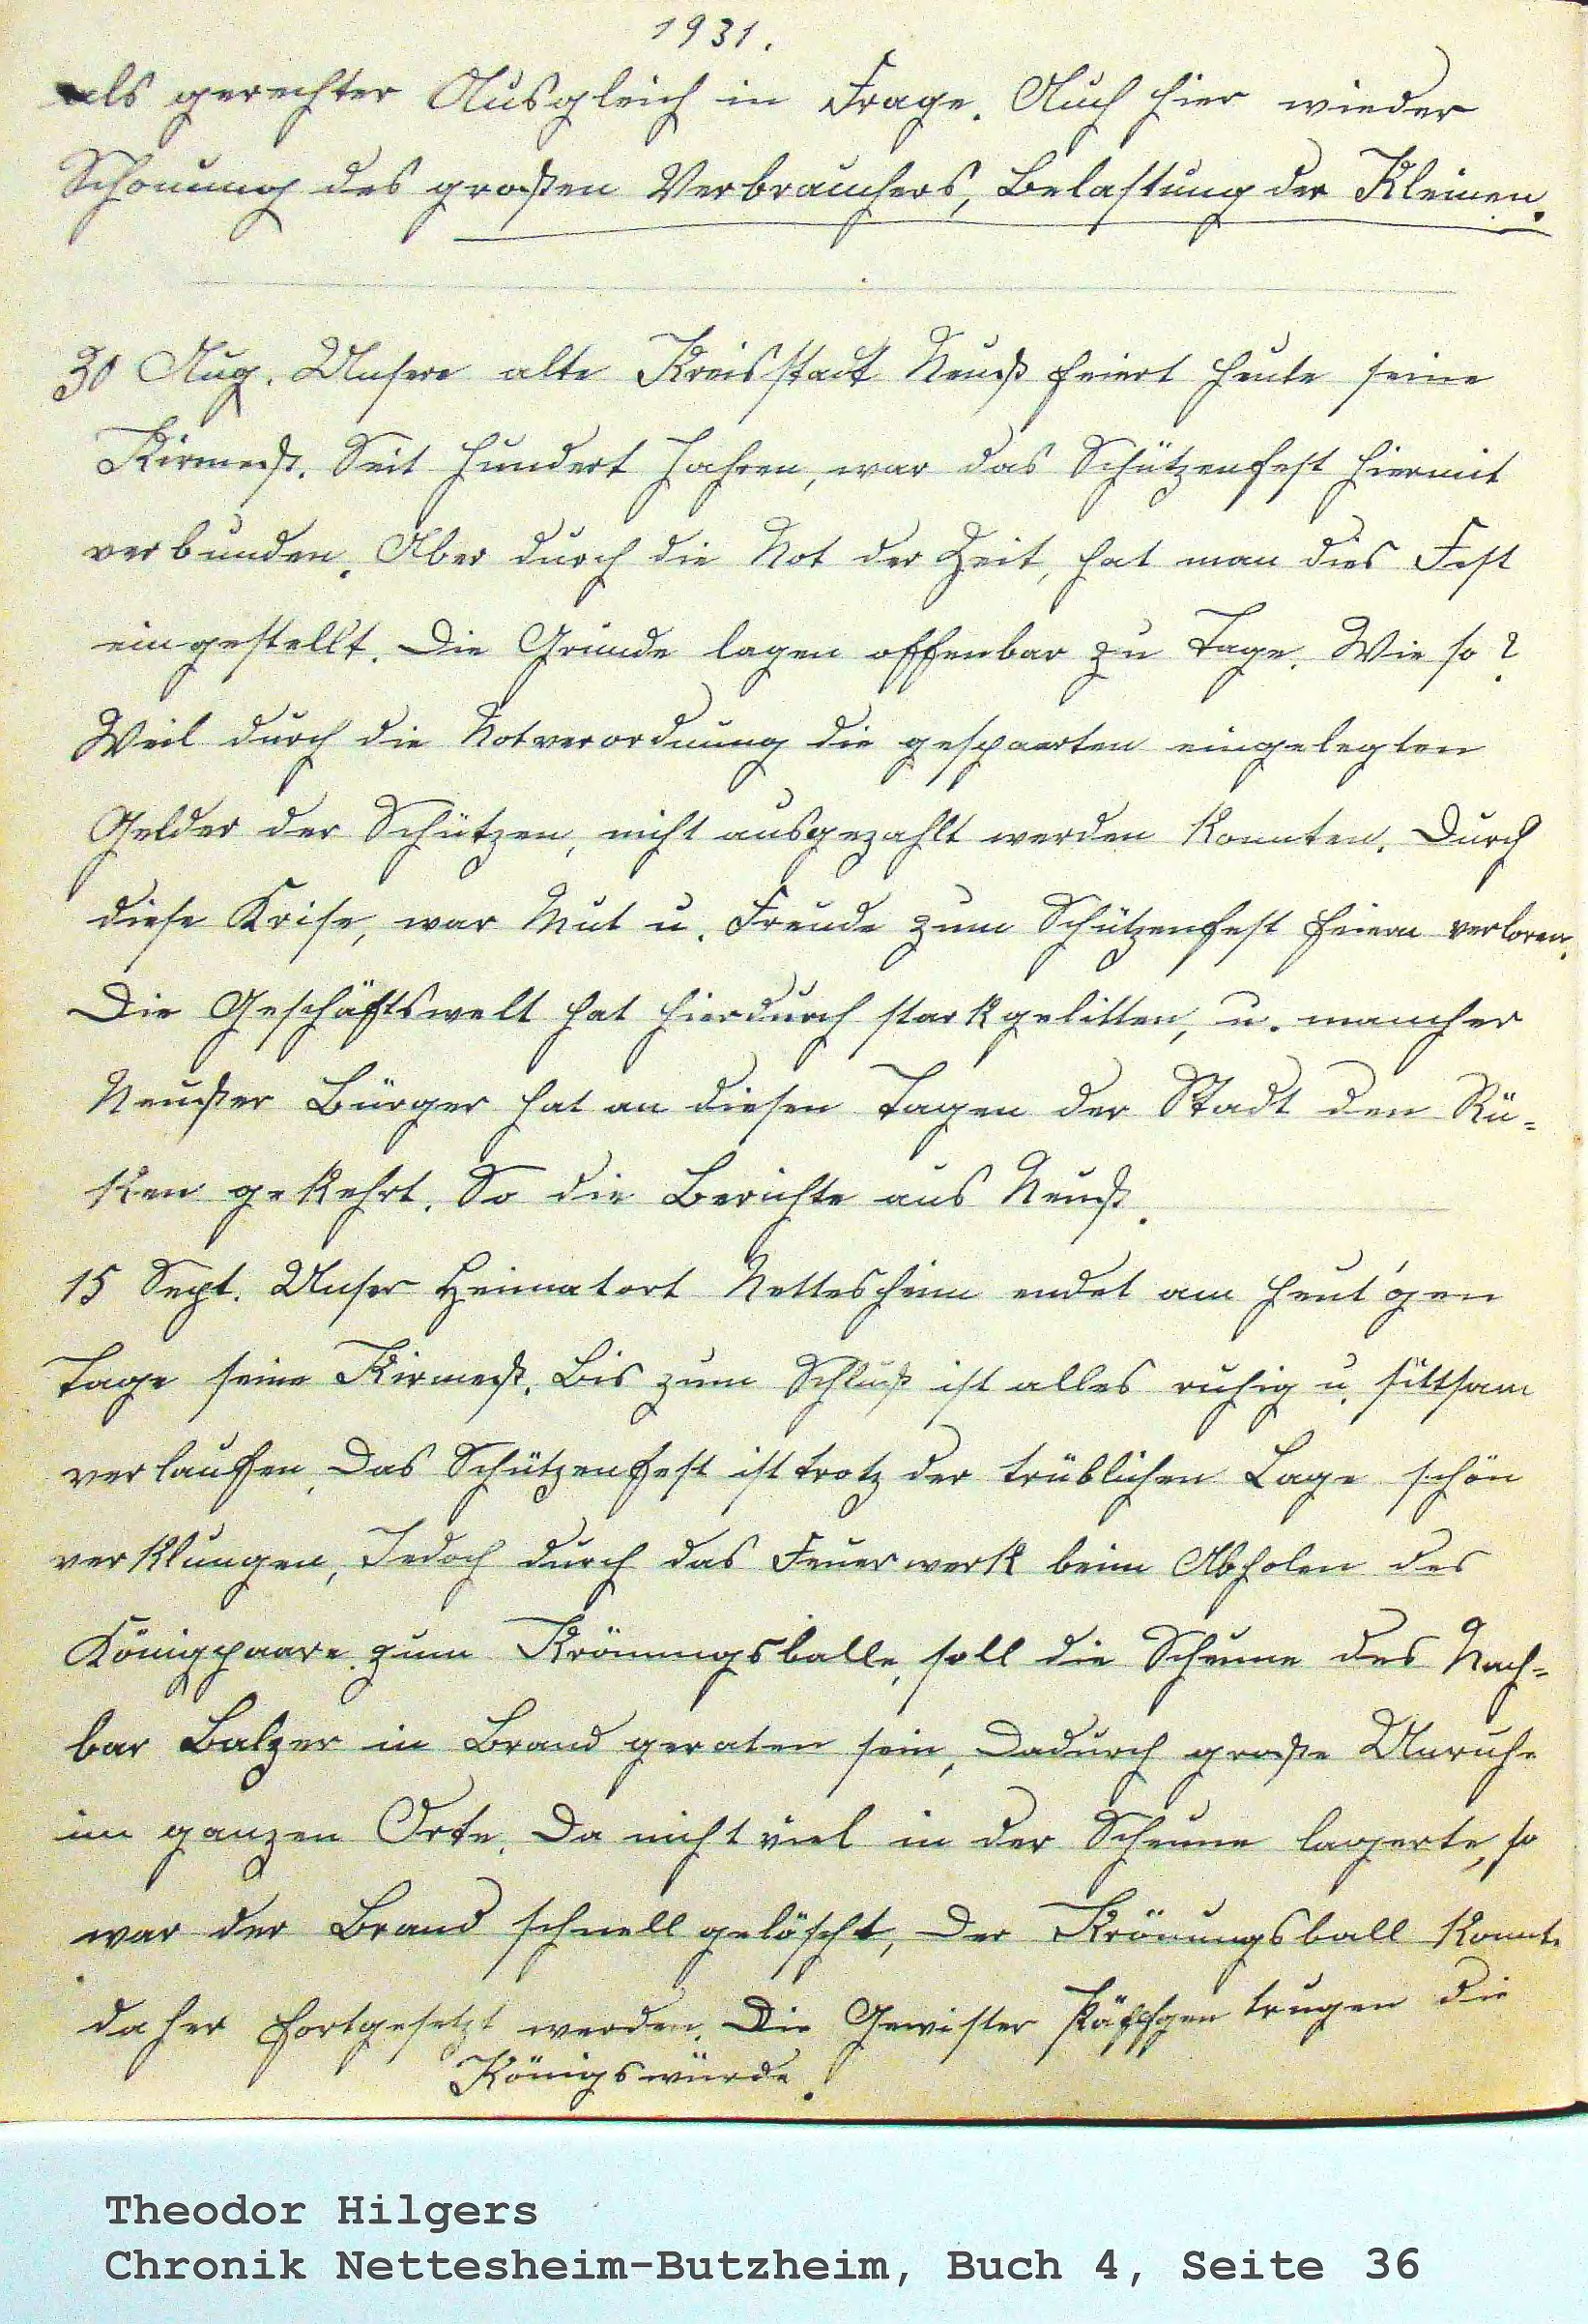 1931.
als gerechter Ausgleich in Frage. Auch hier wieder
Schonung des großen Verbrauchers, Belastung der Kleinen.
30 Aug. Unsere alte Kreisstadt Neuß feiert heute seine
Kirmeß. Seit hundert Jahren, war das Schützenfest hiermit
verbunden. Aber durch die Not der Zeit, hat man dies Fest
eingestellt. Die Gründe lagen offenbar zu Tage. Wie so?
Weil durch die Notverordnung die gesparten eingelegten
Gelder der Schützen, nicht ausgezahlt werden konnten. Durch
diese Krise, war Mut u. Freude zum Schützenfest feiern verloren.
Die Geschäftswelt hat hierdurch stark gelitten, u. mancher
Neußer Bürger hat an diesen Tagen der Stadt den Rü-
ken gekehrt. So die Berichte aus Neuß.
15 Sept. Unser Heimatort Nettesheim endet am heut'gen
Tage seine Kirmeß. Bis zum Schluß ist alles ruhig u. sittsam
verlaufen. Das Schützenfest ist trotz der trüblichen Lage schön
verklungen, Jedoch durch das Feuerwerk beim Abholen des
Königpaare zum Krönungsballe, soll die Scheune des Nach-
bar Balzer in Brand geraten sein, Dadurch große Unruhe
im ganzen Orte. Da nicht viel in der Scheune lagerte, so
war der Brand schnell gelöscht, Der Krönungsball konnte
daher fortgesetzt werden. Die Gewister Päffgen trugen die
Königswürde.
Theodor Hilgers
Chronik Nettesheim-Butzheim, Buch 4, Seite 36